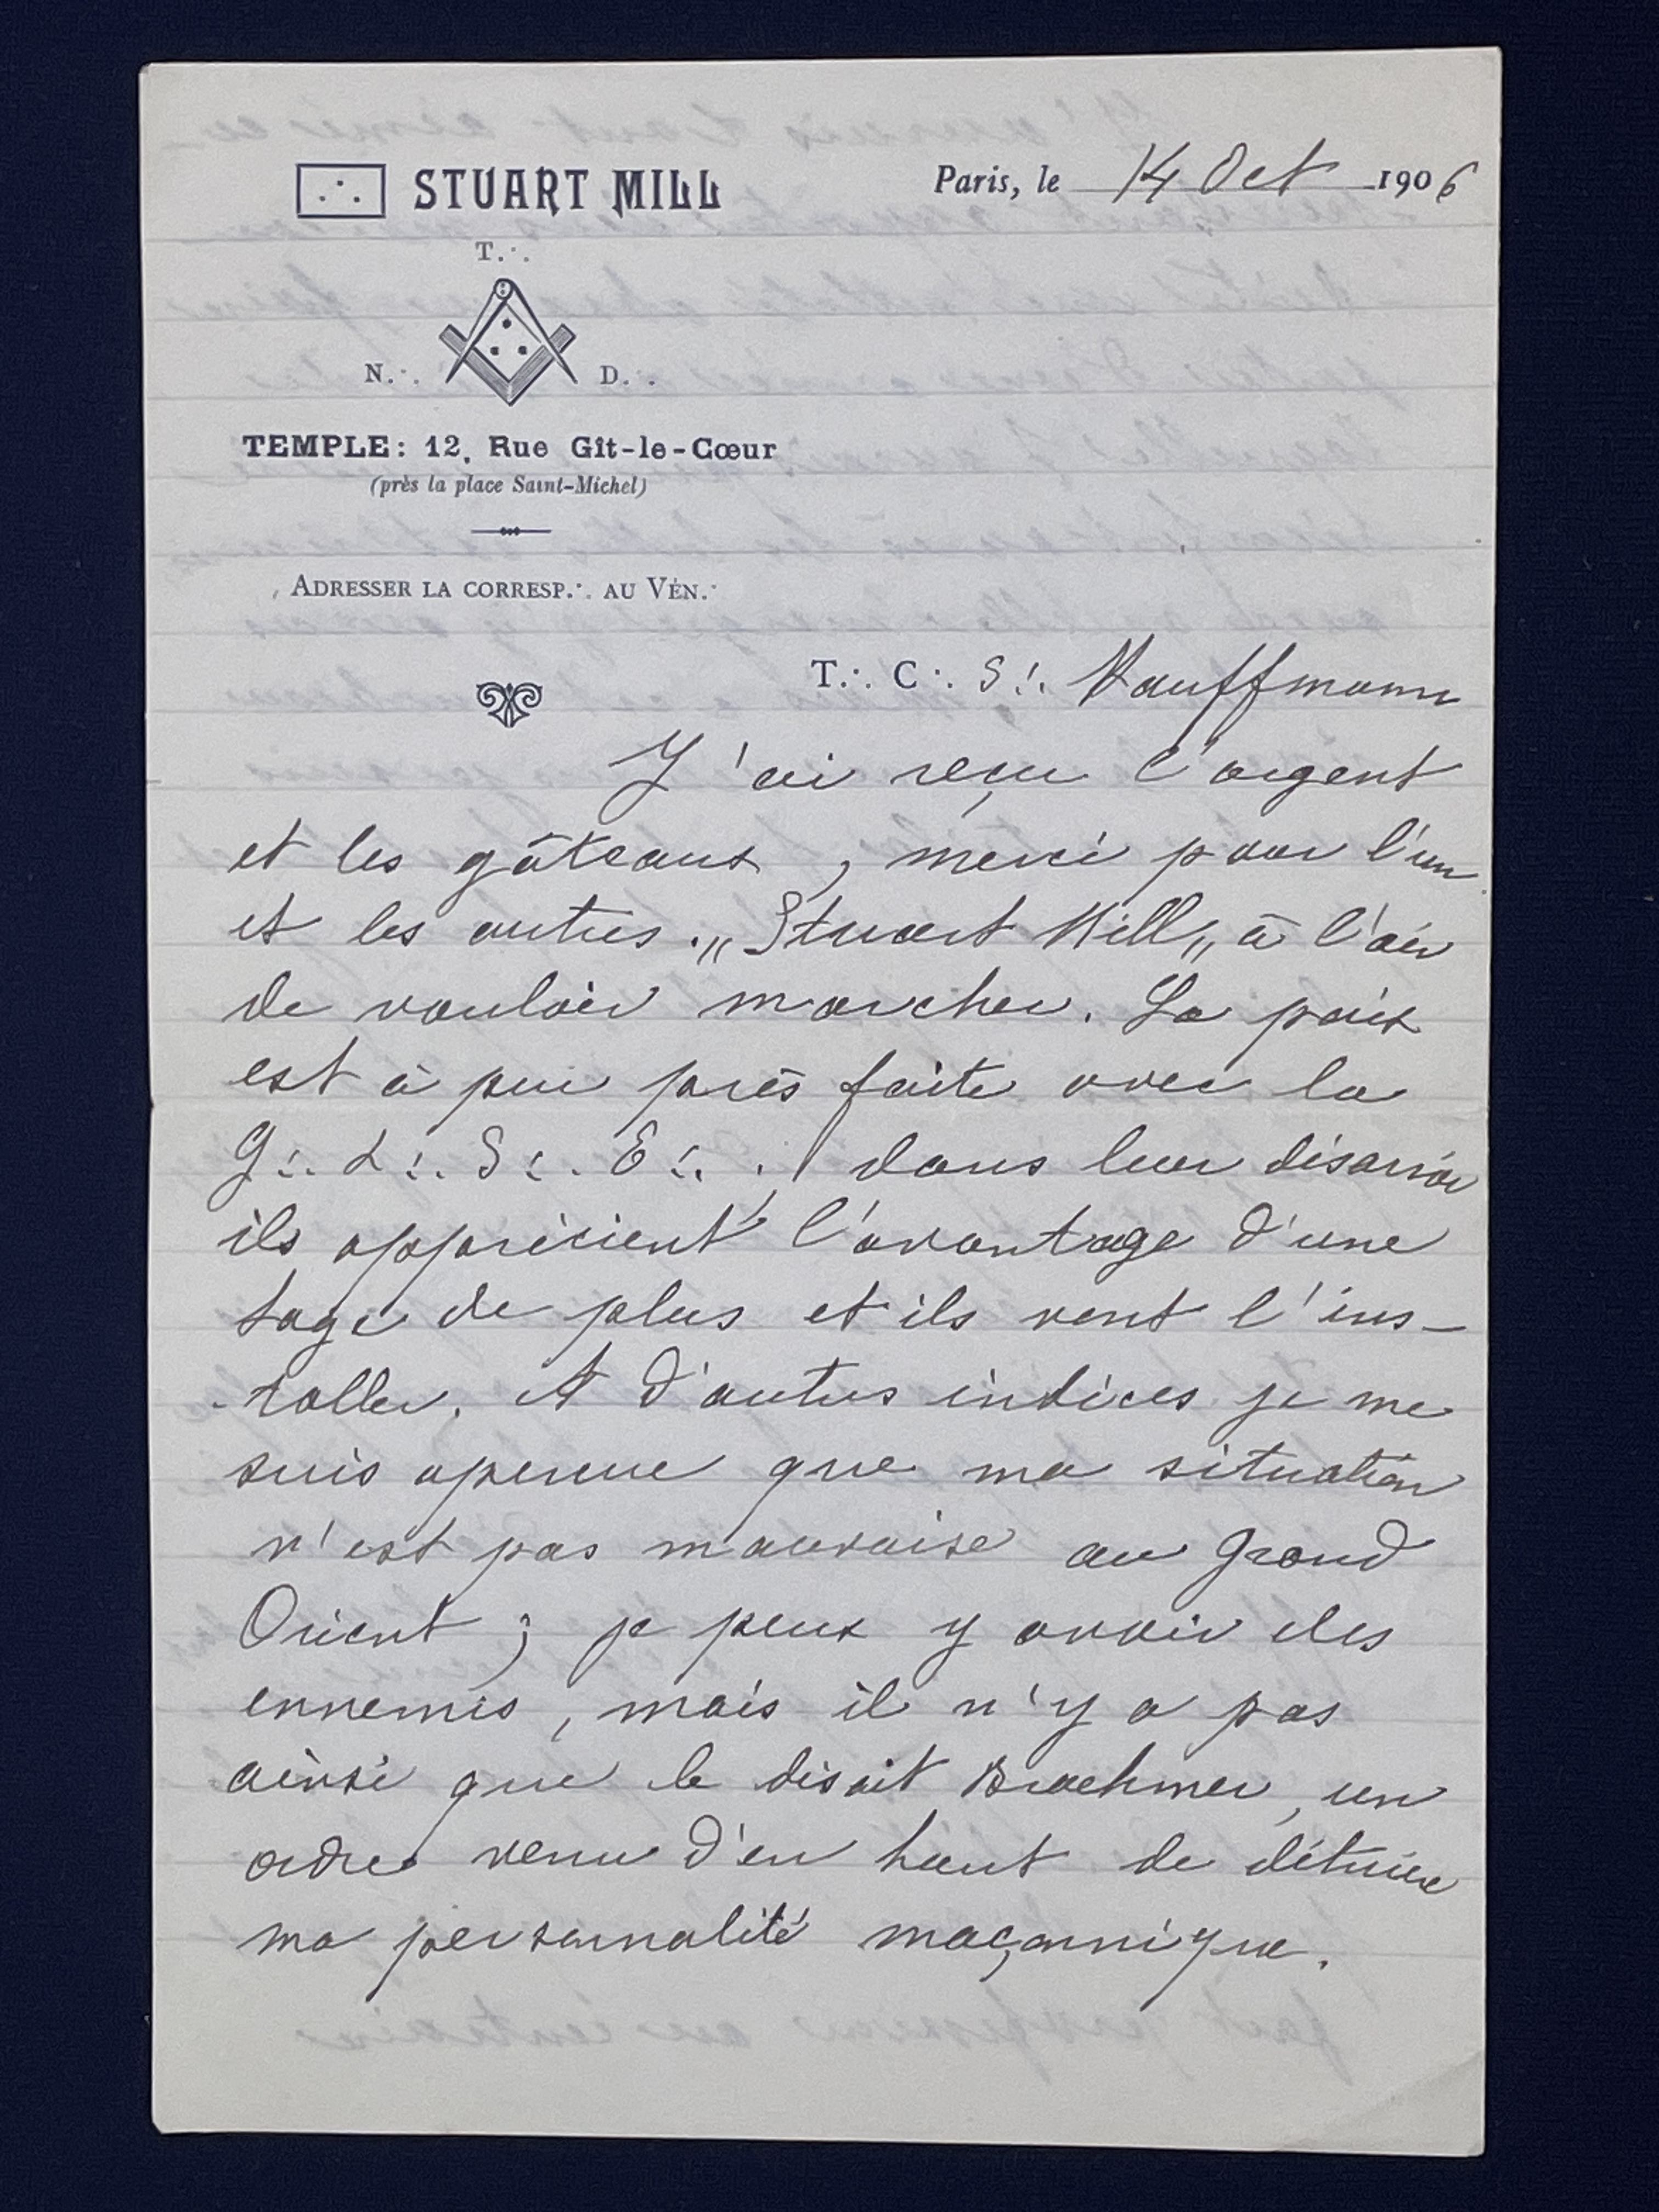 ∴ STUART MILL
Paris, le 14 Oct 1906
T∴
N∴ D∴
TEMPLE: 12, Rue Gît-le-Cœur
(près la place Saint-Michel)
ADRESSER LA CORRESP∴ AU VÉN∴
T∴ C∴ S∴ Kauffmann
J'ai reçu l'argent
et les gâteaux, merci pour l'un
et les autres. „Stuart Mill„ à l'air
de vouloir marcher. La paix
est à peu près faite avec la
G∴ L∴ S∴ E∴. dans leur désarroi
ils apprécient l'avantage d'une
loge de plus et ils vont l'ins-
-taller. A d'autres indices je me
suis aperçue que ma situation
n'est pas mauvaise au Grand
Orient; je peux y avoir des
ennemis, mais il n'y a pas
ainsi que le disait Braehmer, un
ordre venu d'en haut de détruire
ma personnalité maçonnique.